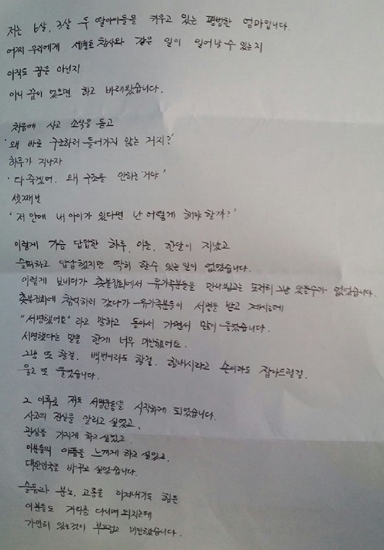 저는 6살, 3살 두 딸아이들을 키우고 있는 평범한 엄마입니다.
어찌 우리에게 세월호 참사와 같은 일이 일어날 수 있는지
아직도 꿈은 아닌지
아니 꿈이 였으면 하고 바래봤습니다.
처음에 사고 소식을 듣고
'왜 바로 구조하러 들어가지 않는 거지?'
하루가 지나자
'다 죽겠어. 왜 구조를 안하는거야'
셋째날
'저 안에 내 아이가 있다면 난 어떻게 해야 할까?'
이렇게 가슴 답답한 하루, 이틀, 한달이 지났고
슬퍼하고 답답했지만 딱히 할수 있는 일이 없었습니다.
이렇게 보내다가 촛불집회에서 유가족분들을 만나뵙고는 도저히 그냥 있을수가 없었습니다.
촛불집회에 참석하러 갔다가 유가족분들이 서명을 받고 계시는데
"서명했어요" 라고 말하고 돌아서 가면서 많이 울었습니다.
서명했다는 말을 한게 너무 미안했어요.
그냥 또 할걸. 백번이라도 할걸. 힘내시라고 손이라도 잡아드릴걸.
울고 또 울었습니다.
그 이후로 저도 서명운동을 시작하게 되었습니다.
사고의 진실을 알리고 싶었고,
관심을 가지게 하고 싶었고,
이분들의 아픔을 느끼게 하고 싶었고,
대한민국을 바꾸고 싶었습니다.
슬픔과 분노, 고통을 이겨내기도 힘든
이분들도 거리를 다니며 외치는데
가만히 있는것이 부끄럽고 미안했습니다.